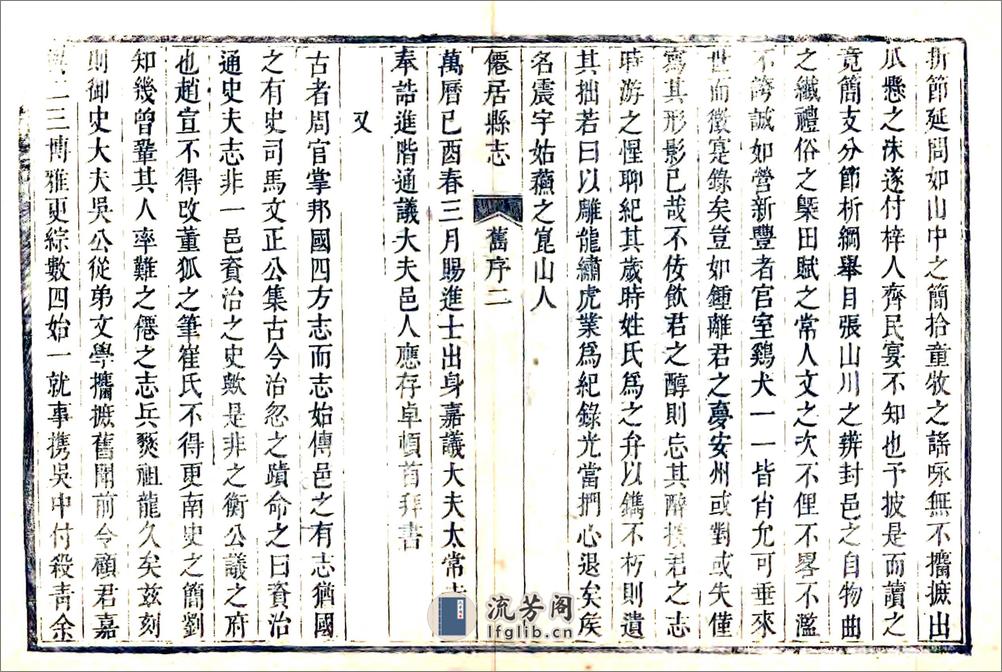 折節延問如山中之簡拾童牧之謠咏無不攟摭出
爪懸之沫遂付梓人齊民宴不知也予披是而讀之
竟簡支分節析綱舉目張山川之辨封邑之自物曲
之纖禮俗之槩田賦之常人文之次不俚不畧不濫
不誇誠如營新豐者官室鷄犬一一皆肖允可垂來
世而徵寔錄矣豈如鍾離君之夢安州或對或失僅
寫其形影已哉不佞飲君之醇則忘其醉披君之志
時游之惺聊紀其歲時姓氏爲之弁以鐫不朽則遺
其拙若曰以雕龍繡虎業爲紀錄光當捫心退矣矦
名震宇姑蘇之崑山人
僊居縣志 舊序二
萬曆己酉春三月賜進士出身嘉議大夫太常
奉誥進階通議大夫邑人應存卓頓首拜書
又
古者周官掌邦國四方志而志始傳邑之有志猶國
之有史司馬文正公集古今治忽之蹟命之曰資治
通史夫志非一邑資治之史歟是非之衡公議之府
也趙宣不得改董狐之筆崔氏不得更南史之簡劉
知幾曾鞏其人率難之僊之志兵燹祖龍久矣兹刻
則御史大夫吳公從弟文學攟摭舊聞前令顧君嘉
與二三博雅更綜數四始一就事携吳中付殺青余
流芳阁
lfglib.cn